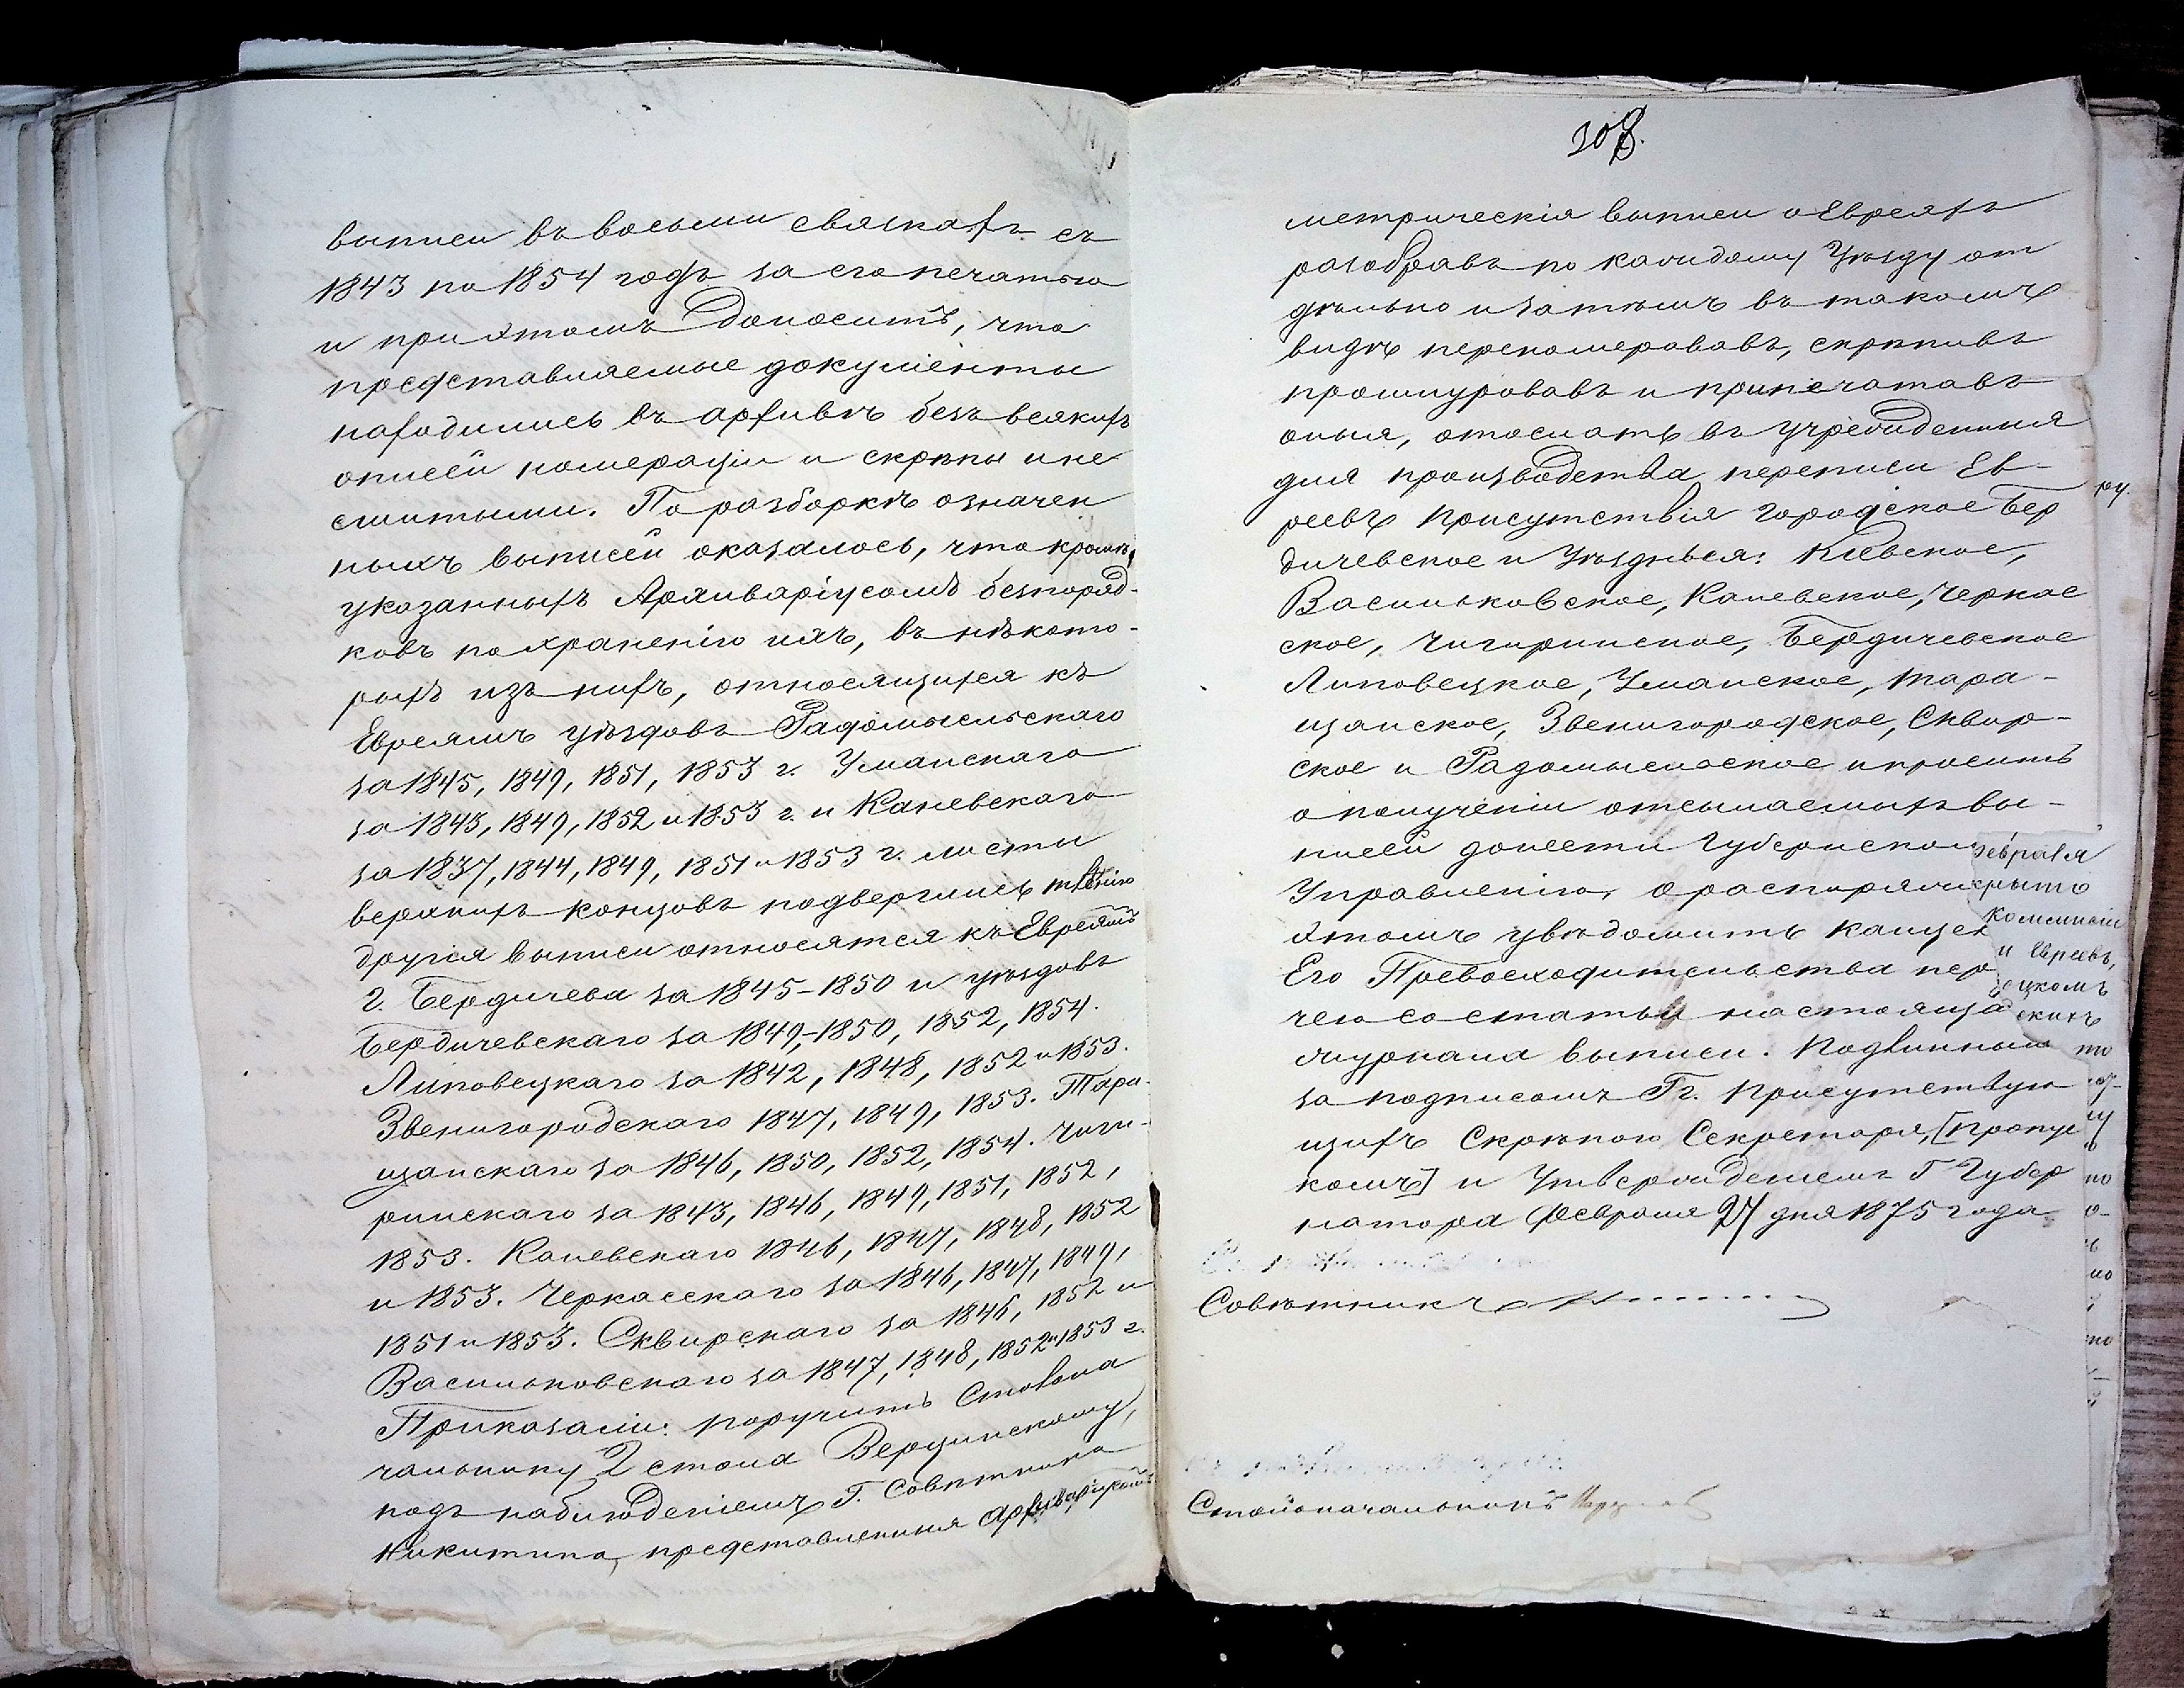 выписи въ восьми связкахъ съ
1843 по 1854 годъ за его печатью
и при этомъ доноситъ, что
представляемые документы
находились въ архивѣ безъ всякихъ
описей номераціи и скрѣпы и не
сшитыми. По разборкѣ означен
ныхъ выписей оказалось, что кромѣ
указанныхъ Архиваріусомъ безпоряд-
ковъ по храненію ихъ, въ нѣкото-
рыхъ изъ нихъ, относящихся къ
Евреямъ уѣздовъ Радомысльскаго
за 1845, 1849, 1851, 1853 г. Уманскаго
за 1843, 1849, 1852 и 1853 г. и Каневскаго
за 1837, 1844, 1849, 1851 и 1853 г. листы
верхнихъ концовъ подверглись тлѣнію
другія выписи относятся къ Евреямъ
г. Бердичева за 1845-1850 и уѣздовъ
Бердичевскаго за 1849,-1850, 1852, 1854.
Липовецкаго за 1842, 1848, 1852 и 1853.
Звенигородскаго 1847, 1849, 1853. Тара-
щанскаго за 1846, 1850, 1852, 1854. Чиги-
ринскаго за 1843, 1846, 1849, 1851, 1852,
1853. Каневскаго 1846, 1847, 1848, 1852
и 1853. Черкасскаго за 1846, 1847, 1849,
1851 и 1853. Сквирскаго за 1846, 1852 и
Васильковскаго за 1847, 1848, 1852 и 1853 г.
Приказали: поручить Столона
чальнику 2 стола
подъ наблюденіемъ Г. Совѣтника
Никитина, представленныя Архиваріусомъ
308.
метрическія выписи о Евреяхъ
разобравъ по каждому Уѣзду от
дѣльно и затѣмъ въ такомъ
видѣ перекомеровавъ, скрѣпивъ
прошнуровавъ и припечатавъ
оныя, отослать въ учрежденныя
для производства переписи Ев-
реевъ Присутствія Городское Бер
дичевское и Уѣздныя: Кіевское,
Васильковское, Каневское, Черкас
ское, Чигиринское, Бердичевское
Липовецкое, Уманское, Тара-
щанское, Звенигородское, Сквир-
ское и Радомысльское и просить
о полученіи отсылаемыхъ вы-
писей донести Губернском
Управленію, о распоряже
этомъ увѣдомить Канцел
Его Превосходительства пер
чею со статьи настояща
журнала выписи. Подлинный
за подписомъ Гг. Присутствую
щихъ Скрѣпою Секретаря, [пропус
комъ] и Утвержденіемъ Г Губер
натора Февраля 27 дня 1875 года
Совѣтникъ
Столоначальникъ
ру.
евраля
крыто
Коммисіи
и Евреевъ,
цкомъ
скихъ